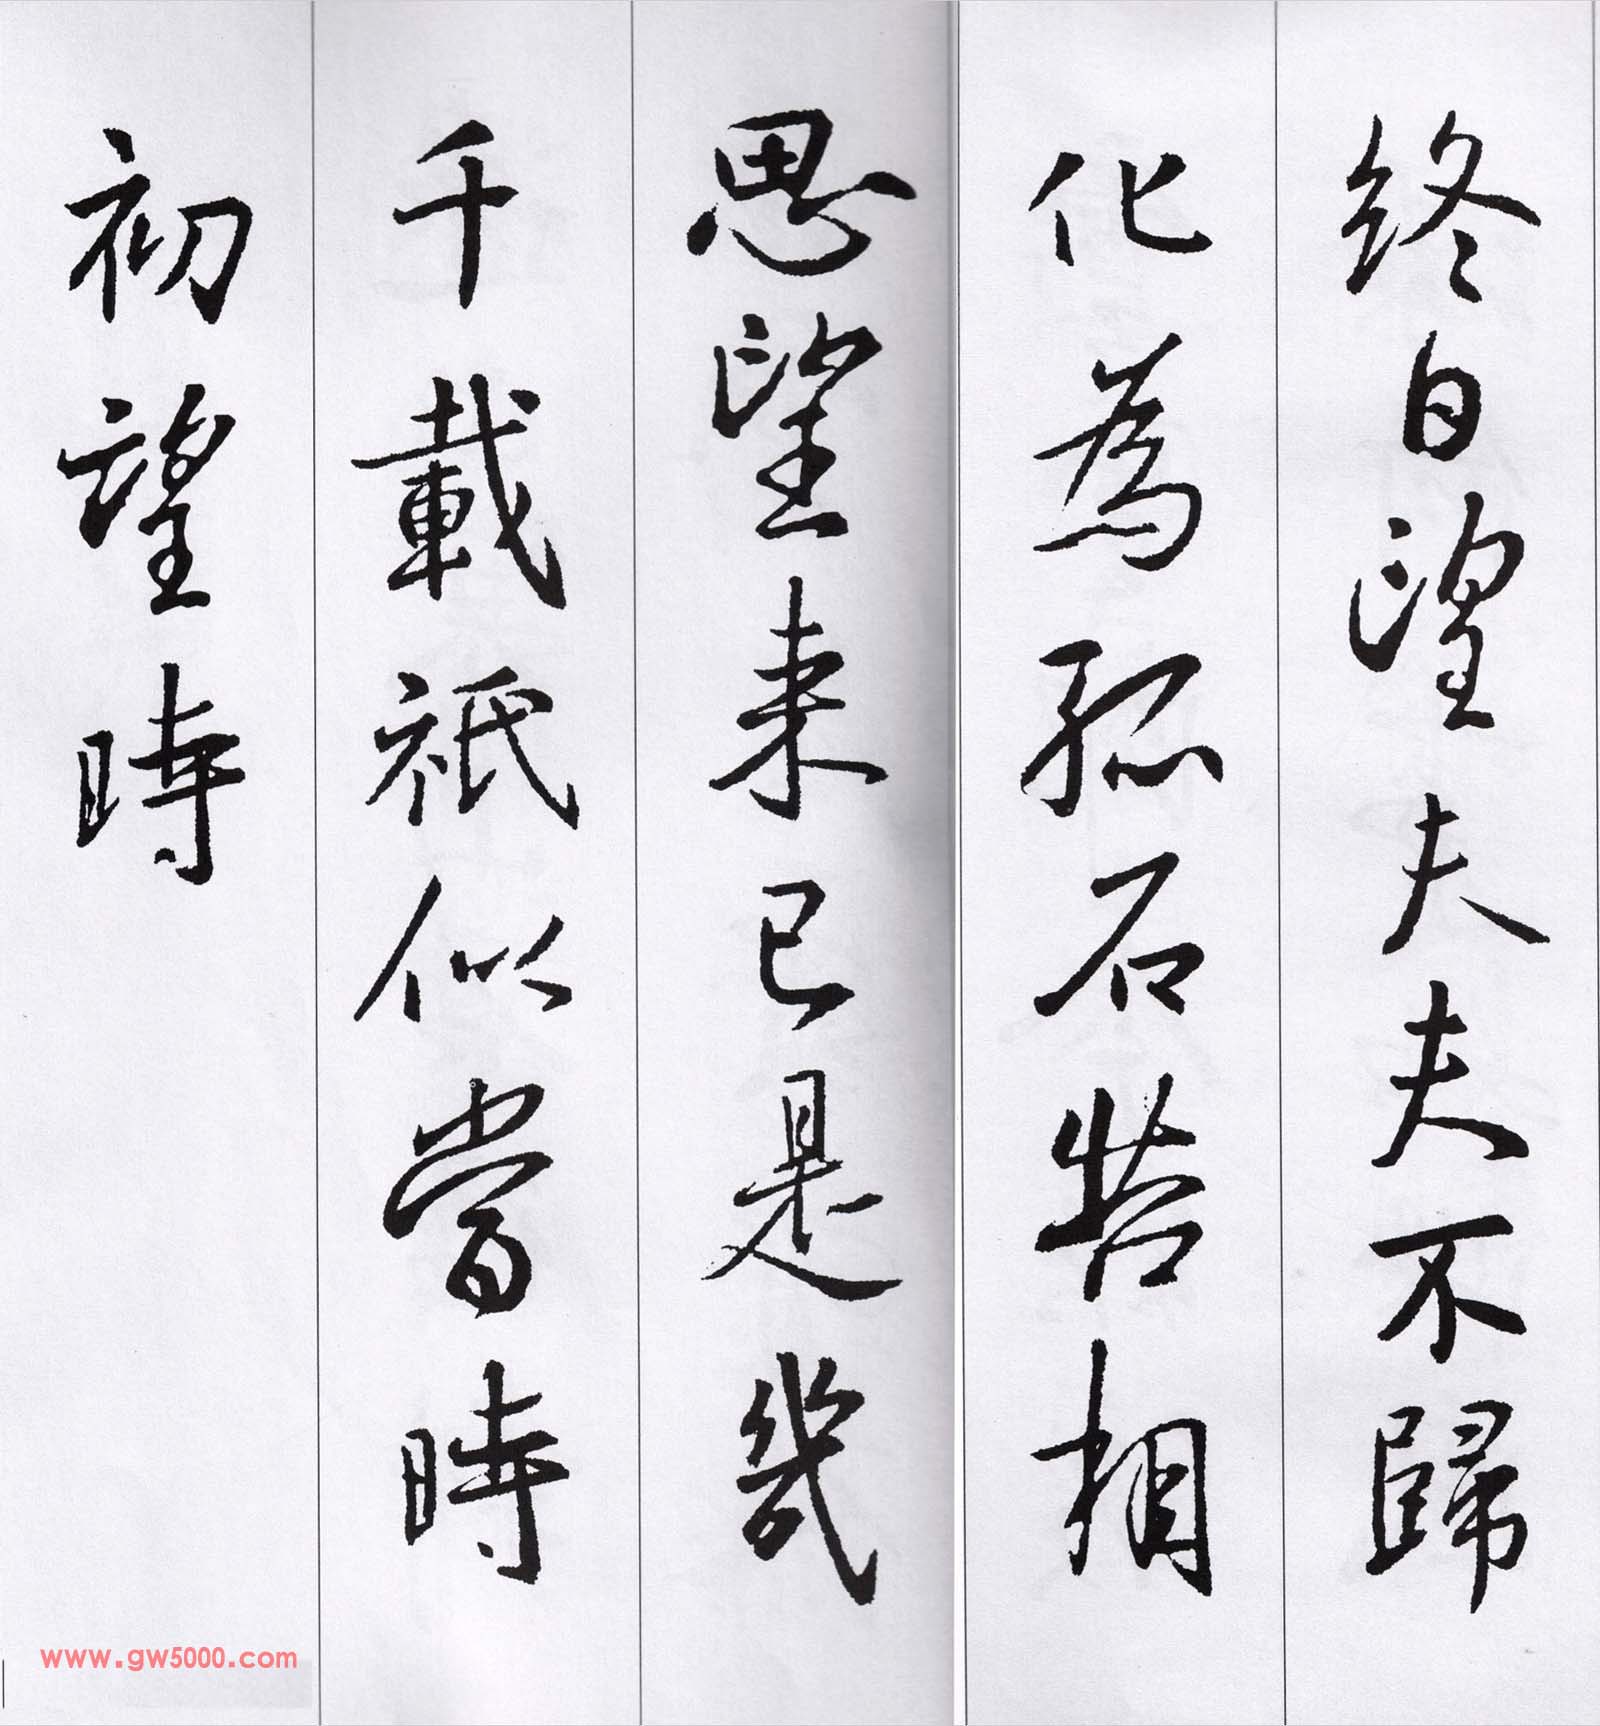 終日望夫夫不歸
化為孤石苦相
思望来已是幾
千載祇似當時
初望時
www.gw5000.com